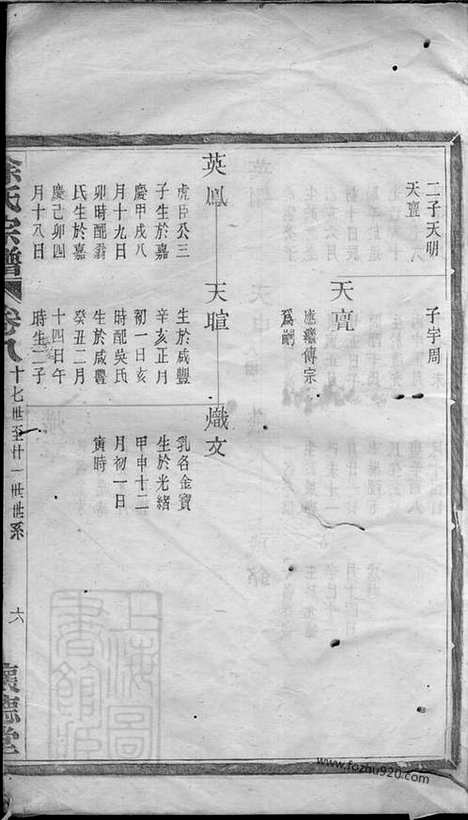 二子天明
天亶
子字周
天亶
應繼傳宗
爲嗣
英鳳
虎臣公三
子生於嘉
慶甲戌八
月十九日
卯時配翁
氏生於嘉
慶己卯四
月十八日
天暄
生於咸豐
辛亥正月
初一日亥
時配吳氏
生於咸豐
癸丑二月
十四日午
時生二子
熾文
乳名金寶
生於光緒
甲申十二
月初一日
寅時
氏宗譜
卷八
十七世至廿一世世系
六
懷德堂
上海圖
書館藏
www.fozhu920.com